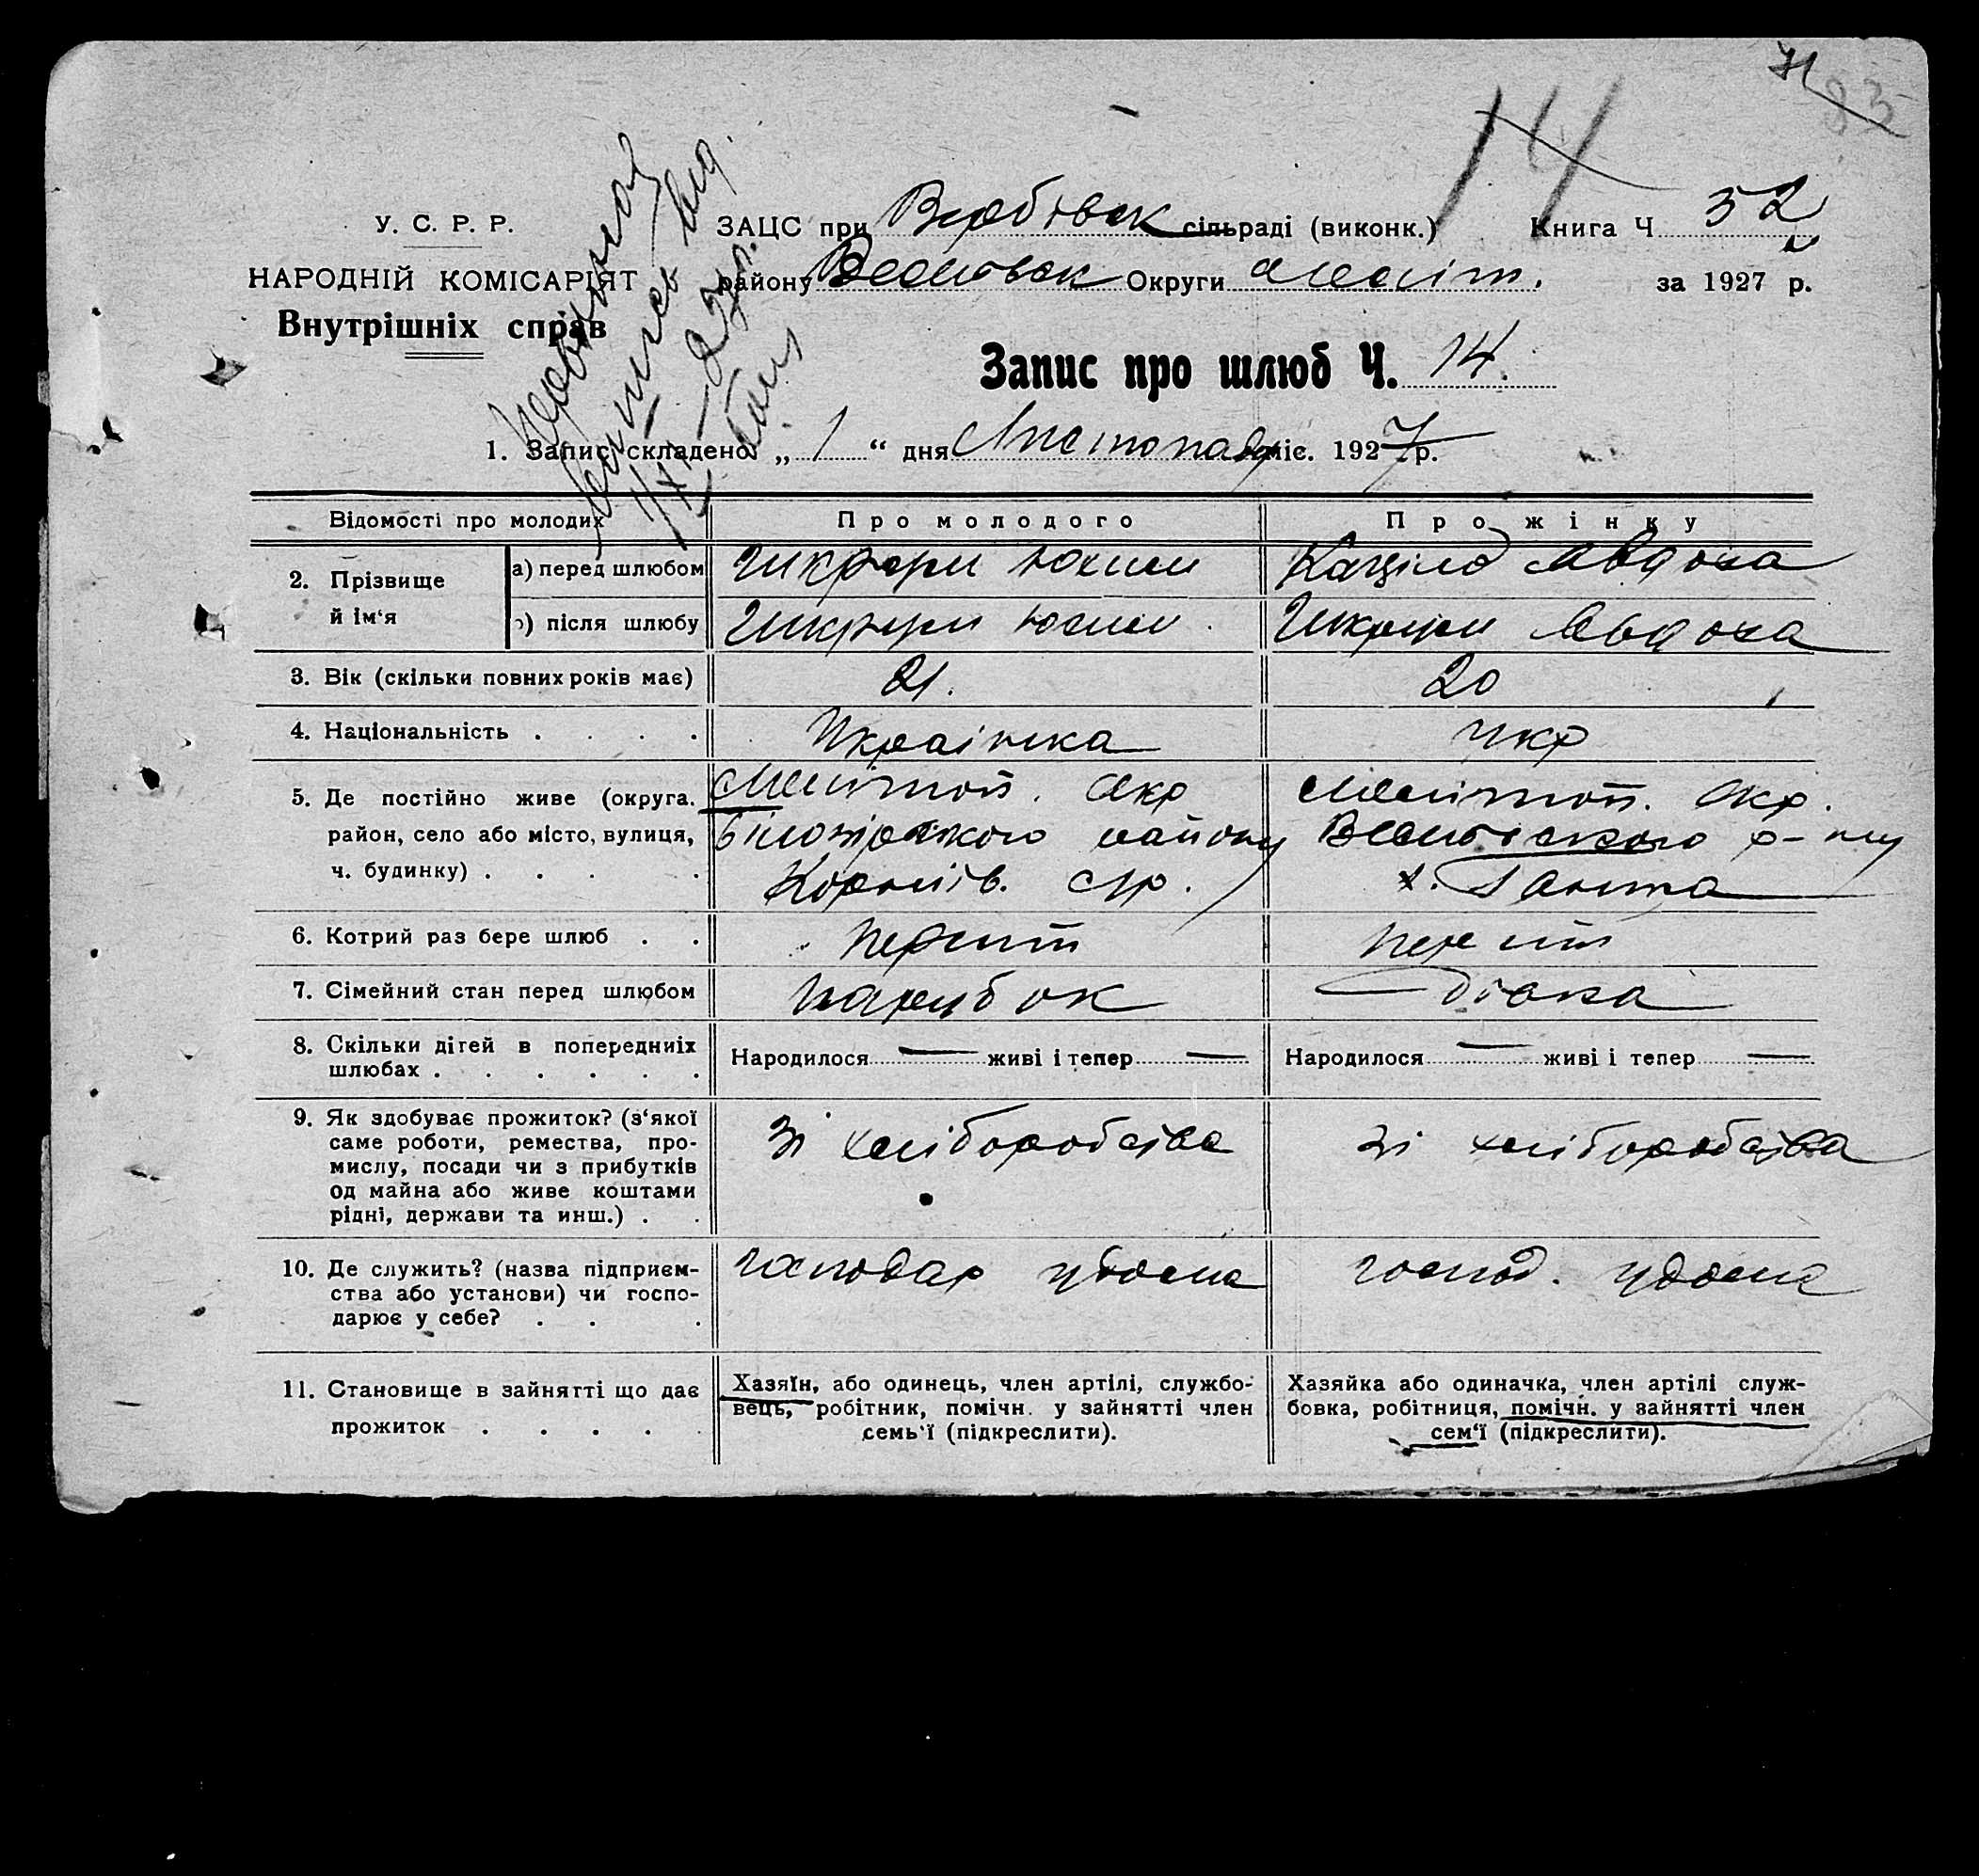 71
83
14
У. С. Р. Р.
НАРОДНІЙ КОМІСАРІЯТ
Внутрішніх справ
ЗАЦС при Вербівск сільраді (виконк.) Книга Ч 52
району Веселовск Округи Меліт. за 1927 р.
Запис про шлюб Ч. 14.
1. Запис складено „ 1 “ дня Листопада міс. 1927 р.
Відомості про молодих Про молодого Про жінку
2. Прізвище й ім‘я
а) перед шлюбом Юхим Авдоха
б) після шлюбу Юхим Авдоха
3. Вік (скільки повних років має) 21. 20
4. Національність . . . . Українка Укр
5. Де постійно живе (округа. Мелітоп. Окр Мелітоп. Окр.
район, село або місто, вулиця, Білозірського району Веселовского р-ну
ч. будинку) . . . . ср. х.
6. Котрий раз бере шлюб . . перший перший
7. Сімейний стан перед шлюбом парубок дівка
8. Скільки дітей в попередниіх
шлюбах . . . . . . Народилося — живі і тепер — Народилося — живі і тепер —
9. Як здобуває прожиток? (з‘якої
саме роботи, ремества, про-
мислу, посади чи з прибутків
од майна або живе коштами
рідні, держави та инш.) . .
зі хліборобства зі хліборобства
10. Де служить? (назва підприєм-
ства або установи) чи госпо-
дарює у себе? . . .
господар удома господ. удома
11. Становище в зайнятті що дає
прожиток . . . . .
Хазяїн, або одинець, член артілі, службо-
вець, робітник, помічн. у зайнятті член
семь‘ї (підкреслити).
Хазяйка або одиначка, член артілі служ-
бовка, робітниця, помічн. у зайнятті член
сем‘ї (підкреслити).